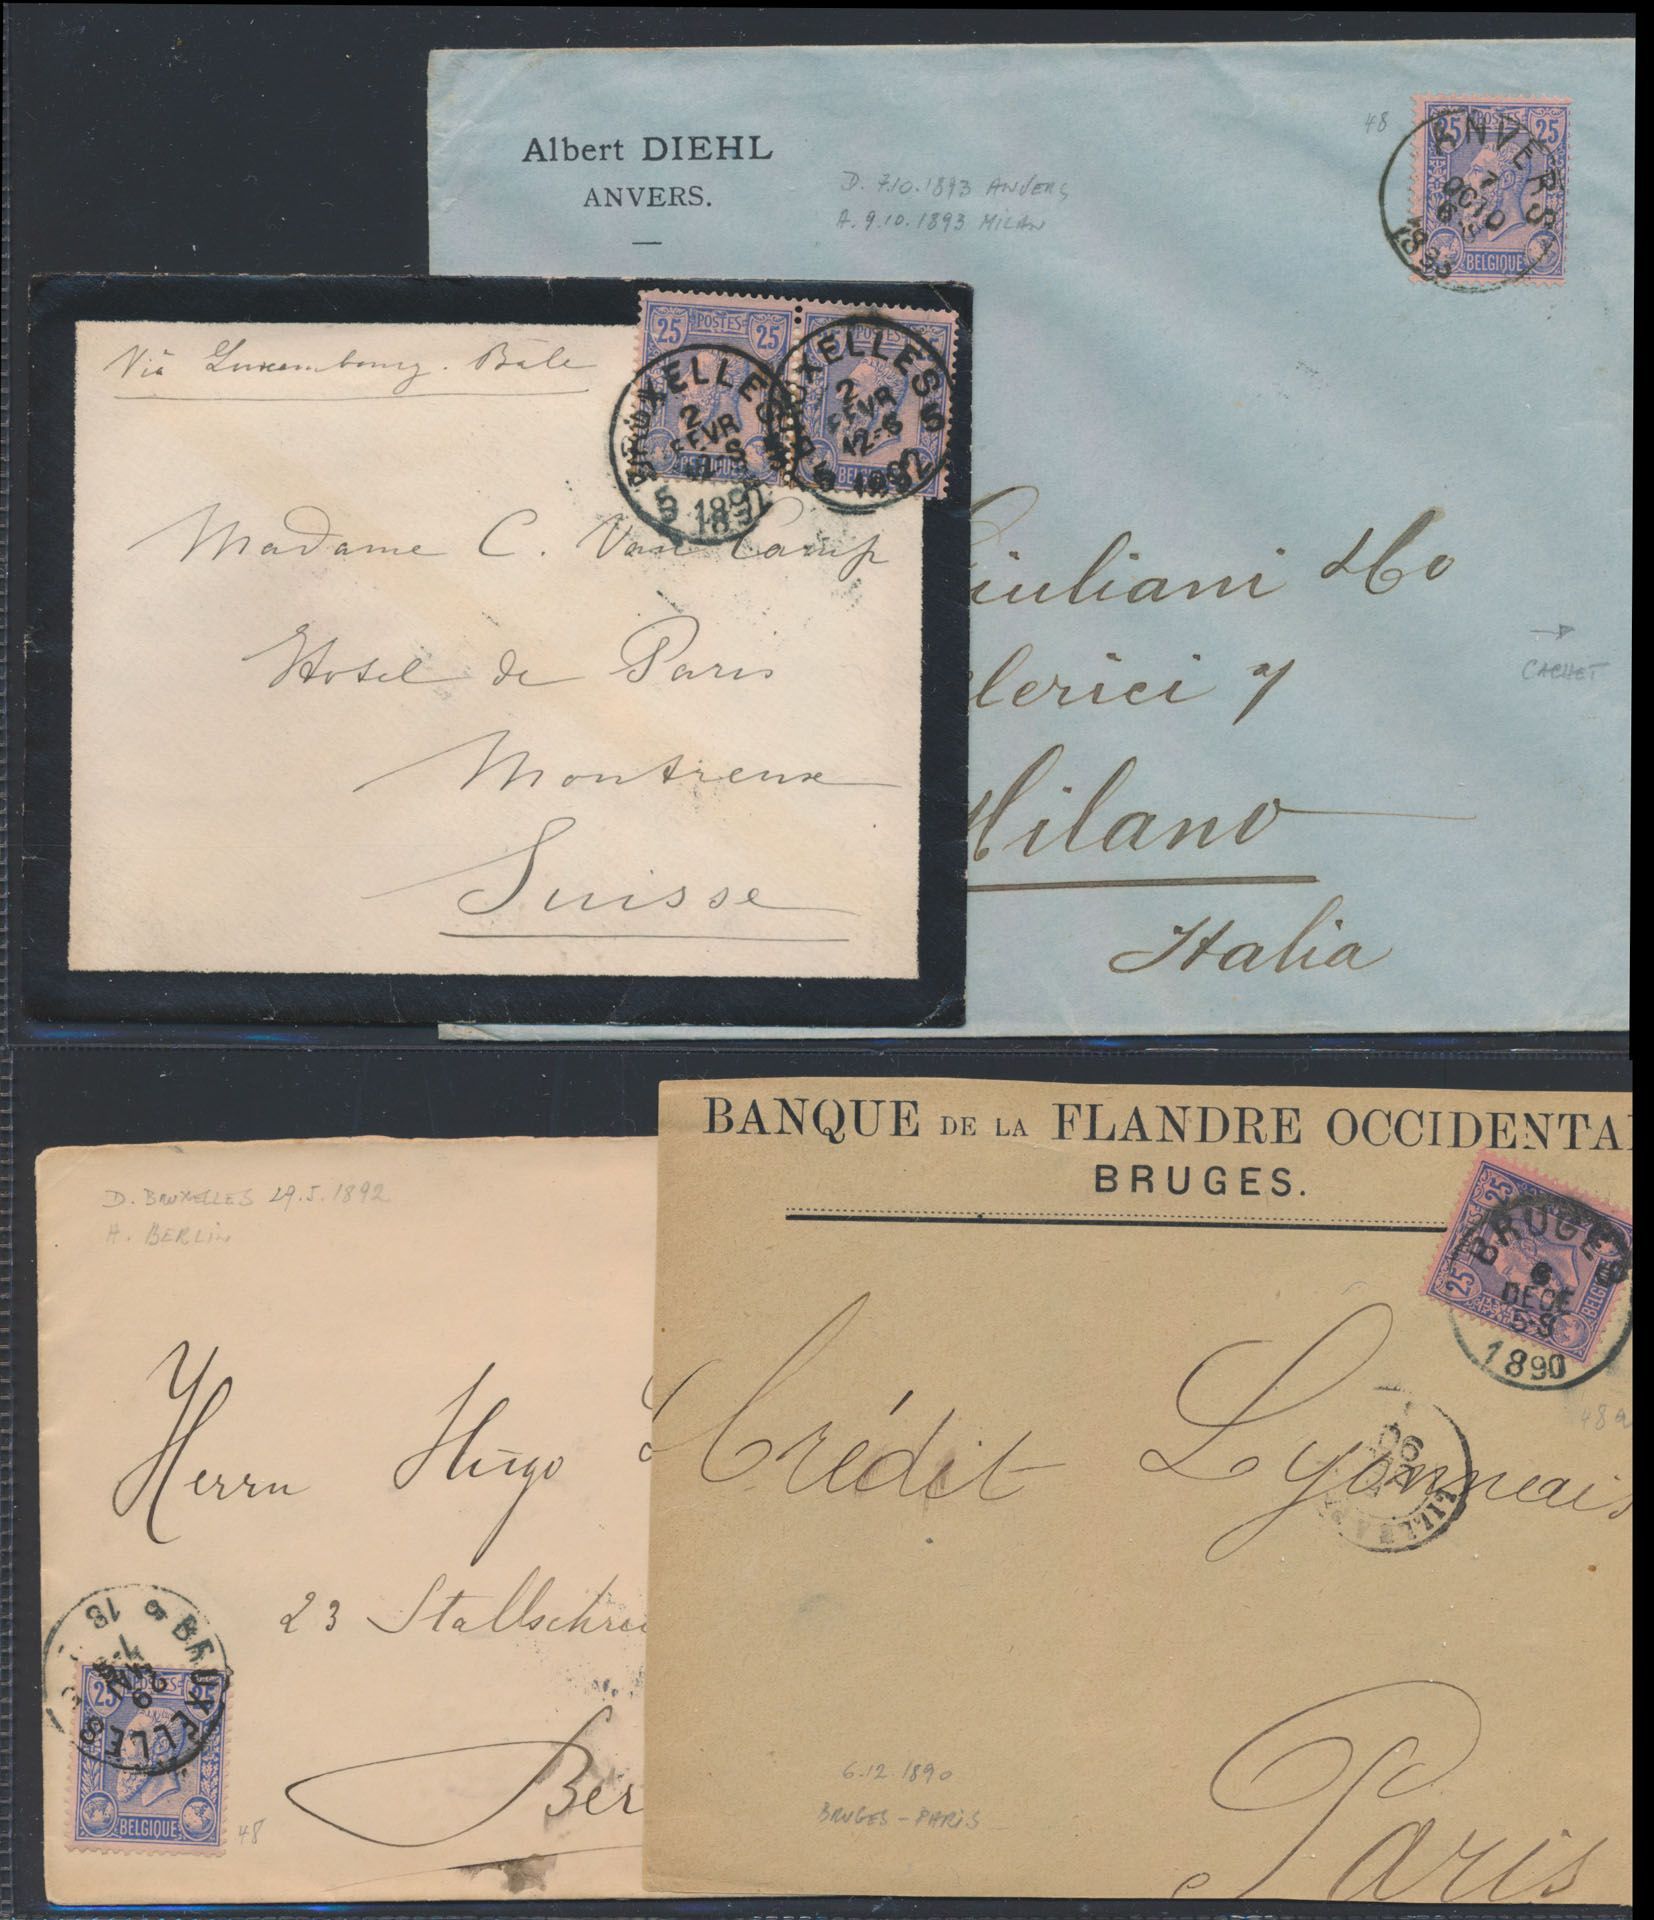 Albert DIEHL
ANVERS.
D. 7.10.1893 ANVERS
A. 9.10.1893 MILAN
48
25 POSTES 25
ANVERS
7
OCTO
6
1893
BELGIQUE
Giuliani & Co
Clerici 7
Milano
Italia
CACHET
Via Luxembourg. Bâle
25 POSTES 25
BRUXELLES 5
2
FEVR
12-S
5 1892
BELGIQUE
BRUXELLES 5
2
FEVR
12-S
5 1892
Madame C. Van Camp
Hotel de Paris
Montreux
Suisse
D. BRUXELLES 29.5.1892
A. BERLIN
Herrn Hugo
23 Stallschrei
Ber
BRUXELLES 5 18
29
MAI
25 POSTES 25
BELGIQUE
48
BANQUE DE LA FLANDRE OCCIDENTA
BRUGES.
25 25
BRUGES
6
DECE
5-S
1890
BELGI
48a
Crédit Lyonnais
LILLE A P
90
Paris
6.12.1890
BRUGES - PARIS